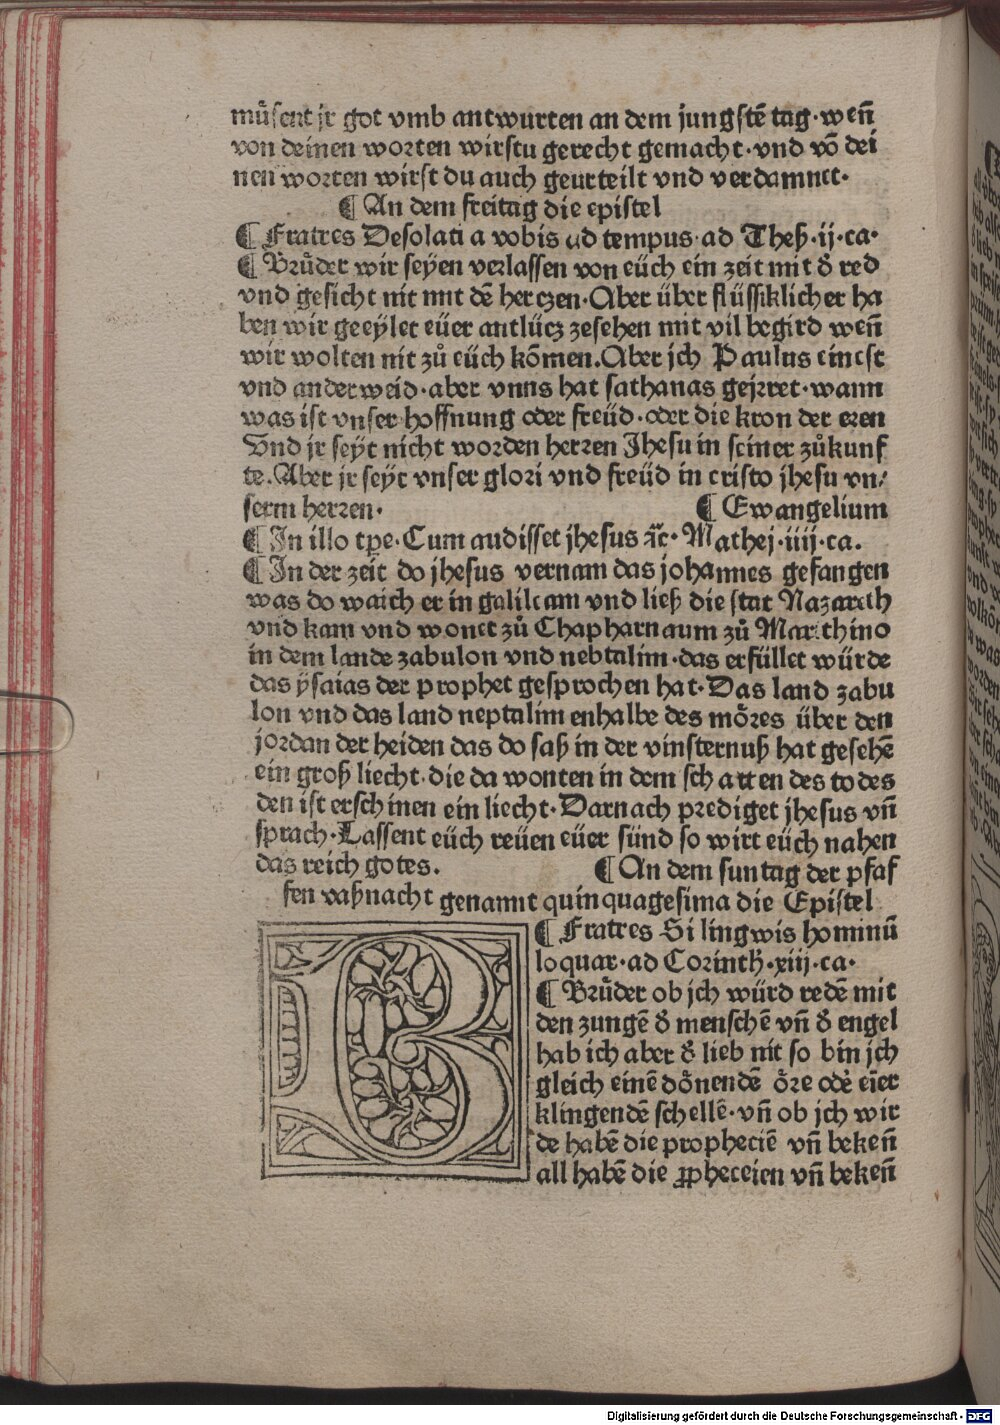 můsent jr got vmb antwurten an dem jungstē tag·wen̄
von deinen worten wirstu gerecht gemacht·vnd vō dei
nen worten wirst du auch geurteilt vnd verdamnet·
¶ An dem freitag die epistel
¶ Fratres Desolati a vobis ad tempus·ad Theß·ij·ca·
¶ Brůder wir seÿen verlassen von eüch ein zeit mit ð red
vnd gesicht nit mit dē herczen·Aber über flüssiklicher ha
ben wir geeÿlet eüer antlücz zesehen mit vil begird wen̄
wir wolten nit zů eüch kōmen.Aber jch Paulus einest
vnd anderweid·aber vnns hat sathanas gejrret·wann
was ist vnser hoffnung oder freüd·oder die kron der eren
Vnd jr seÿt nicht worden herren Jhesu in seiner zůkunf
te.Aber jr seÿt vnser glori vnd freüd in cristo jhesu vn/
serm herren· ¶ Ewangelium
¶ In illo tpe·Cum audisset jhesus ꝛc̄· Mathej·iiij·ca.
¶ In der zeit do jhesus vernam das johannes gefangen
was do waich er in galileam vnd ließ die stat Nazareth
vnd kam vnd wonet zů Chapharnaum zů Marithino
in dem lande zabulon vnd nebtalim·das erfüllet würde
das ÿsaias der prophet gesprochen hat·Das land zabu
lon vnd das land neptalim enhalbe des möres über den
jordan der heiden das do saß in der vinsternuß hat gesehē
ein groß liecht·die da wonten in dem schatten des todes
den ist erschinen ein liecht·Darnach prediget jhesus vn̄
sprach·Lassent eüch reüen eüer sünd so wirt eüch nahen
das reich gotes. ¶ An dem suntag der pfaf
fen vaßnacht genannt quinquagesima die Epistel
¶ Fratres Si lingwis hominū
loquar·ad Corinth·xiij·ca·
¶ Brůder ob jch würd redē mit
den zungē ð menschē vn̄ ð engel
hab ich aber ð lieb nit so bin jch
gleich einē dönendē öre odė eīer
klingendē schellē·vn̄ ob jch wir
de habē die propheciē vn̄ beken̄
all habē die ꝓpheceien vn̄ beken̄
B
Digitalisierung gefördert durch die Deutsche Forschungsgemeinschaft - DFG